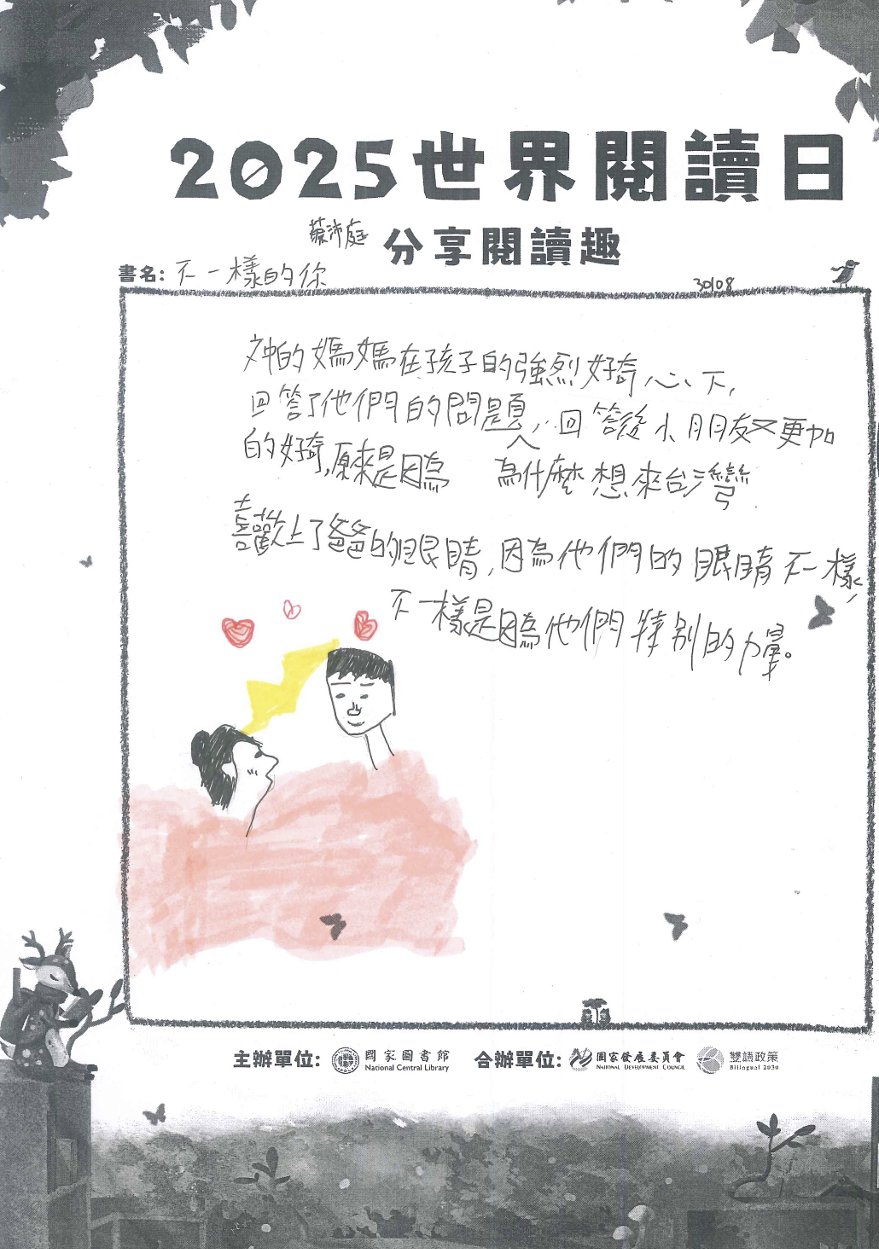 2025世界閱讀日
蔡沛庭 分享閱讀趣
書名: 不一樣的你
30108
的媽媽在孩子的強烈好奇心下,
回答了他們的問題,回答後小朋友又更加
的好奇,原來是因為 為什麼想來台灣
人
喜歡上了爸爸的眼睛,因為他們的眼睛不一樣,
不一樣是因為他們特別的力量。
主辦單位: 國家圖書館 National Central Library 合辦單位: 國家發展委員會 NATIONAL DEVELOPMENT COUNCIL 雙語政策 Bilingual 2030